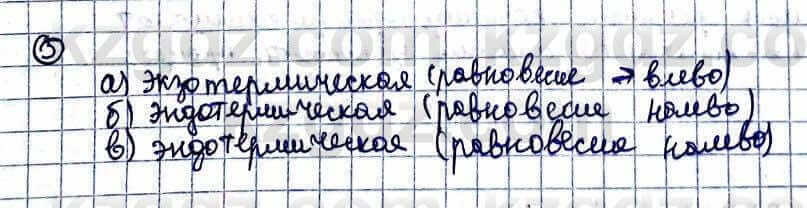 5
а) экзотермическая (равновесие → влево)
б) эндотермическая (равновесие налево)
в) эндотермическая (равновесие налево)